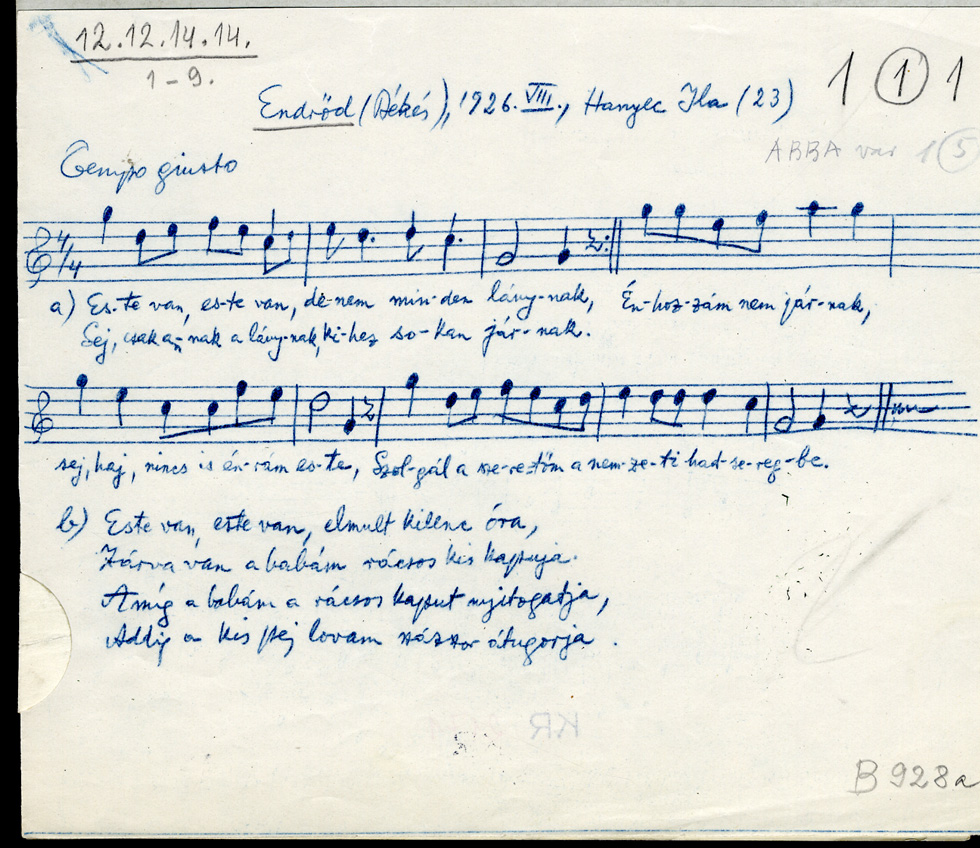 12.12.14.14.
1-9.
1 1 1
Endrőd (Békés), 1926. VIII., Hanyec Ila (23)
ABBA var 1 5
Tempo giusto
4/4
a) Es-te van, es-te van, de nem min-den lány-nak, Én-hoz-zám nem jár-nak,
Sej, csak a-nak a lány-nak, ki-hez so-kan jár-nak.
sej, haj, nincs is én-rám es-te, Szol-gál a sze-re-tőm a nem-ze-ti had-se-reg-be.
b) Este van, este van, elmult kilenc óra,
Zárva van a babám rácsos kis kapuja.
Amíg a babám a rácsos kaput nyitogatja,
Addig a kis pej lovam százszor átugorja.
KR
B 928a